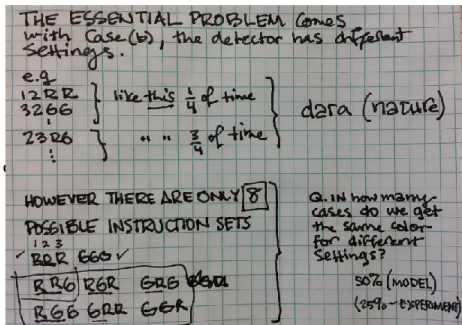 THE ESSENTIAL PROBLEM Comes
with Case(b), the detector has different
settings.
e.g
12RR
32GG
⋮
like this 1/4 of time
23RG
⋮
" " 3/4 of time
data (nature)
HOWEVER THERE ARE ONLY 8
POSSIBLE INSTRUCTION SETS
1 2 3
✓ RRR GGG ✓
RRG RGR GRG
RGG GRR GGR
Q. IN how many
cases do we get
the same color
for different
settings?
50% (MODEL)
(25% ~ EXPERIMENT)